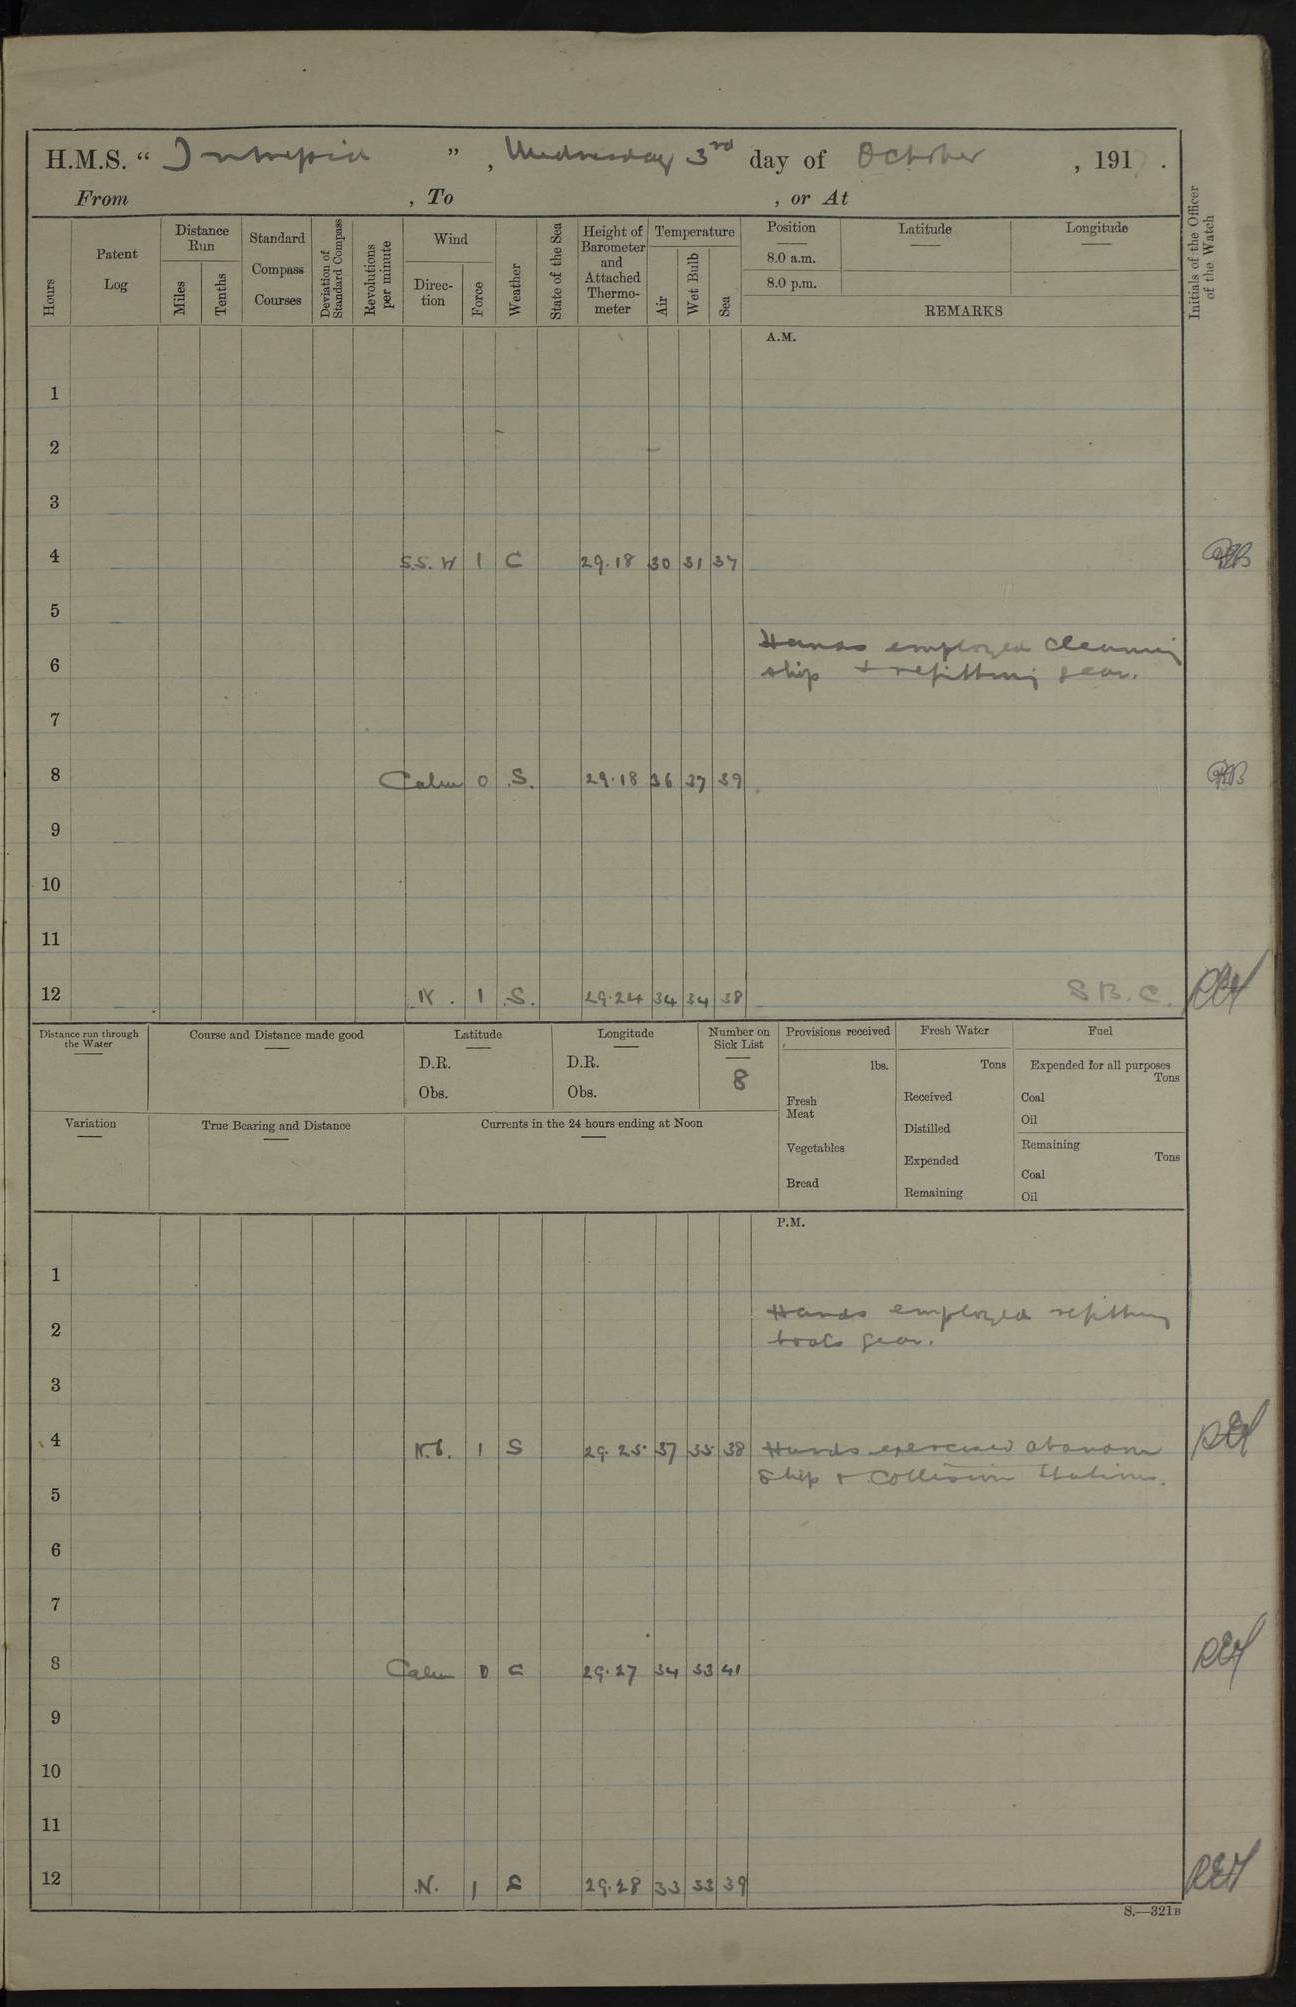 H.M.S. “ Intrepid ” , Wednesday 3rd day of October , 1917 .
From , To , or At
Hours
Patent Log
Distance Run
Miles
Tenths
Standard Compass Courses
Deviation of Standard Compass
Revolutions per minute
Wind
Direction
Force
Weather
State of the Sea
Height of Barometer and Attached Thermometer
Temperature
Air
Wet Bulb
Sea
Position
8.0 a.m.
8.0 p.m.
Latitude
Longitude
REMARKS
Initials of the Officer of the Watch
A.M.
1
2
3
4 S.S.W 1 C 29.18 30 31 37
5
Hands employed cleaning
6
ship + refitting gear.
7
8 Calm 0 S. 29.18 36 37 39
9
10
11
12 N. 1 S. 29.24 34 34 38 S B. C.
Distance run through the Water
Course and Distance made good
Latitude
D.R.
Obs.
Longitude
D.R.
Obs.
Number on Sick List
8
Provisions received
lbs.
Fresh Meat
Vegetables
Bread
Fresh Water
Tons
Received
Distilled
Expended
Remaining
Fuel
Expended for all purposes
Tons
Coal
Oil
Remaining
Tons
Coal
Oil
Variation
True Bearing and Distance
Currents in the 24 hours ending at Noon
P.M.
1
Hands employed refitting
2
boats gear.
3
4 N.E. 1 S 29.25 37 35 38 Hands exercised abandon
Ship + Collision Stations.
5
6
7
8 Calm 0 C 29.27 34 33 41
9
10
11
12 .N. 1 S 29.28 33 33 39
S.—321B